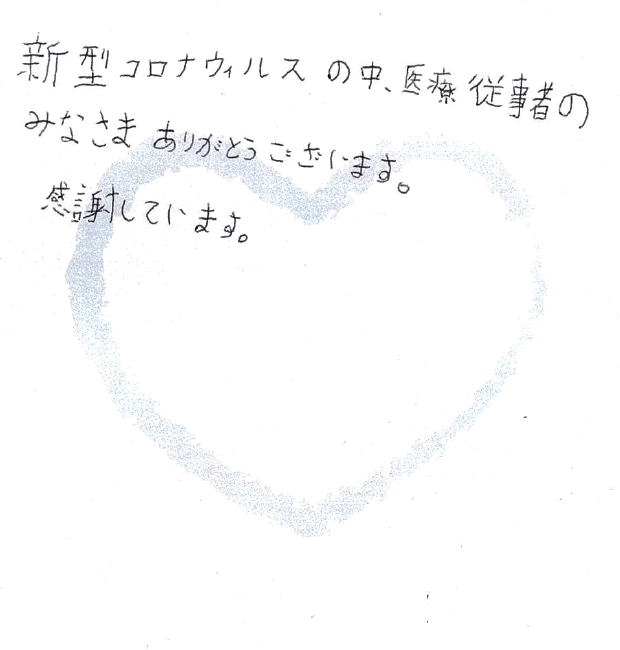 新型コロナウィルスの中、医療従事者の
みなさま ありがとうございます。
感謝しています。